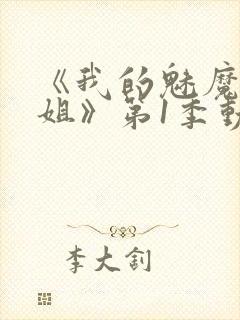 《我的魅魔
姐》第1季動
李大釗